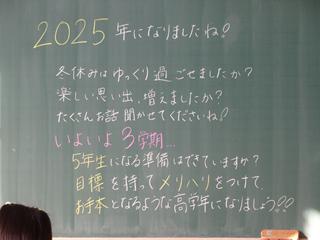 2025年になりましたね!
冬休みはゆっくり過ごせましたか?
楽しい思い出、増えましたか?
たくさんお話聞かせてくださいね!
いよいよ3学期…
5年生になる準備はできていますか?
目標を持ってメリハリをつけて、
お手本となるような高学年になりましょう!!